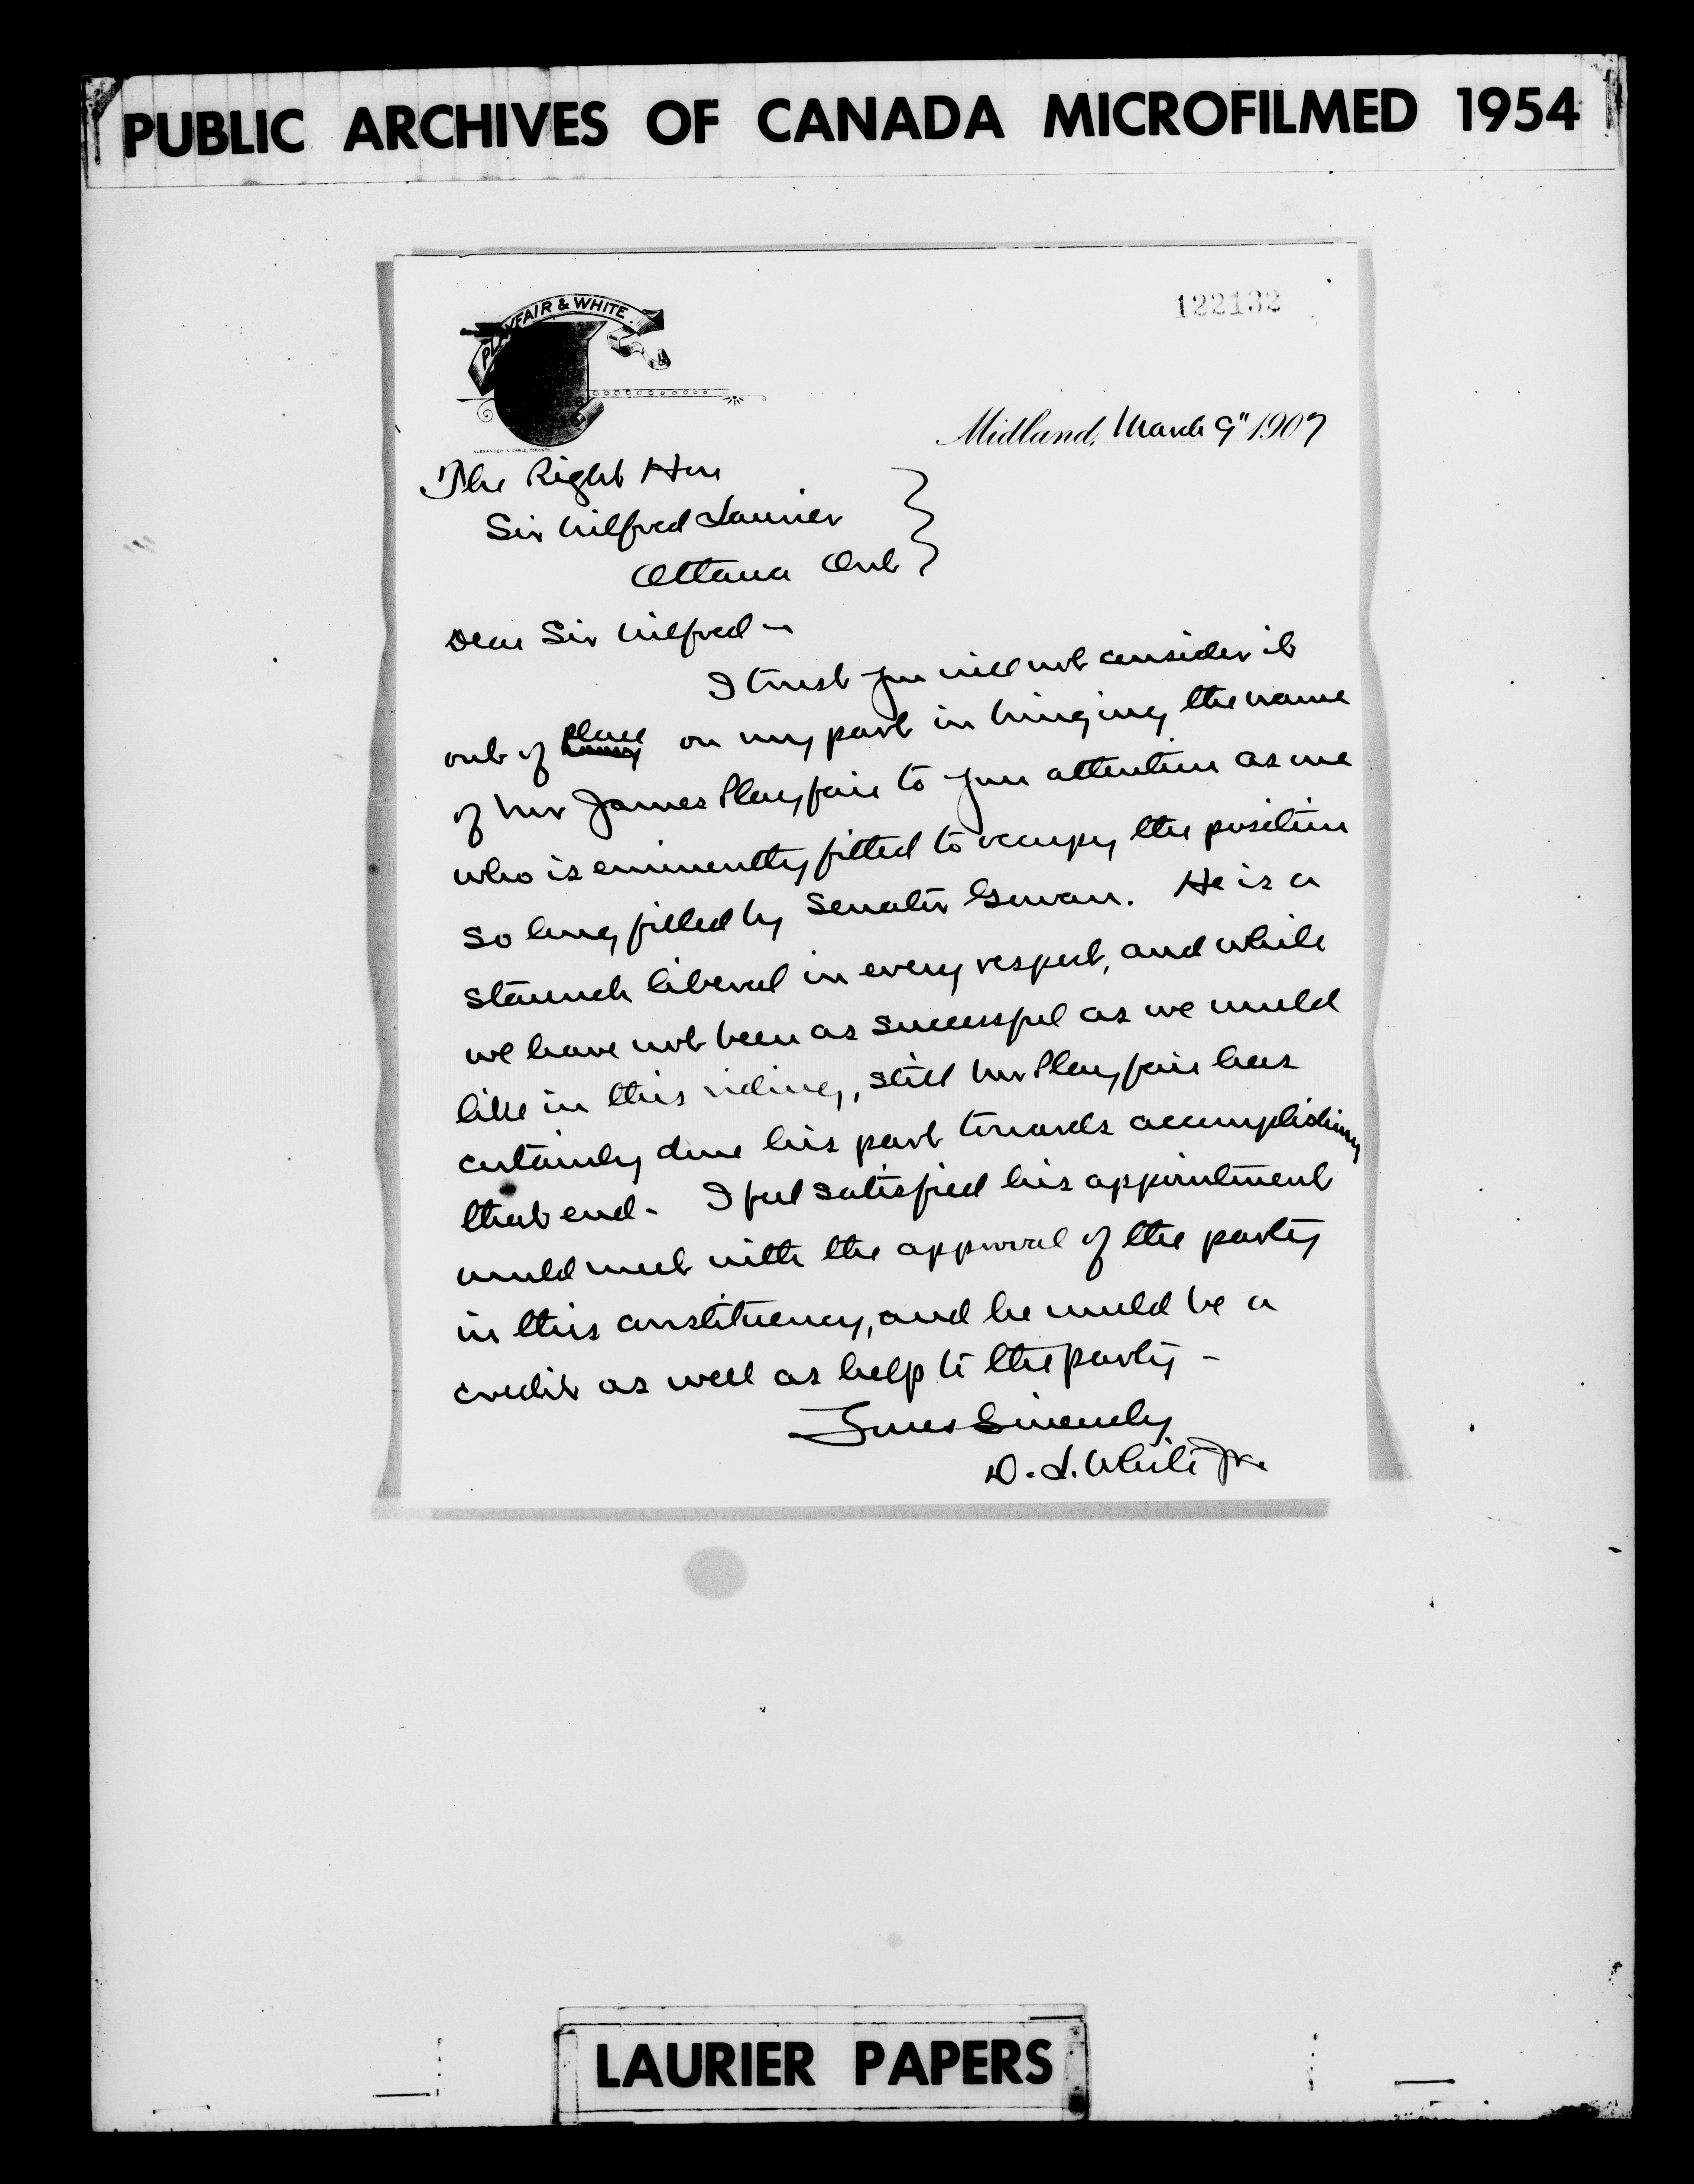 PUBLIC ARCHIVES OF CANADA MICROFILMED 1954
PLAYFAIR & WHITE.
122132
Midland, March 9" 1907
The Right Hon
Sir Wilfred Laurier
Ottawa Ont
Dear Sir Wilfred -
I trust you will not consider it
out of place on my part in bringing the name
of Mr James Playfair to your attention as one
who is eminently fitted to occupy the position
so long filled by Senator Gowan. He is a
staunch liberal in every respect, and while
we have not been as successful as we would
like in this riding, still Mr Playfair has
certainly done his part towards accomplishing
that end - I feel satisfied his appointment
would meet with the approval of the party
in this constituency, and he would be a
credit as well as help to the party -
Yours Sincerely
D. L. White Jr.
LAURIER PAPERS